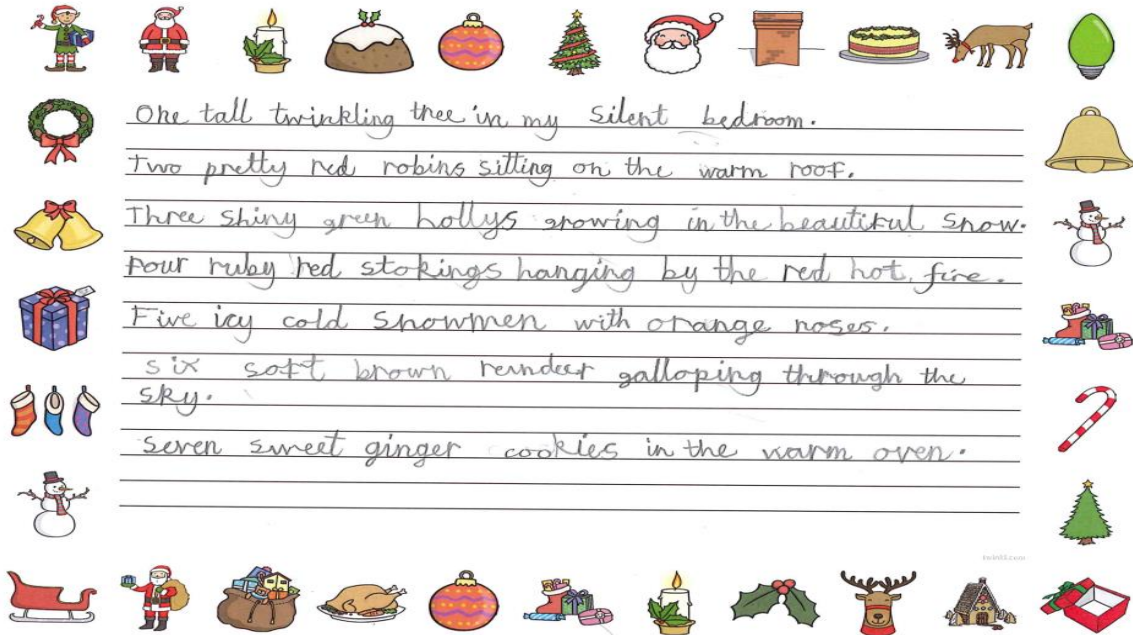 One tall twinkling thee in my silent bedroom.
Two pretty red robins sitting on the warm roof.
Three shiny green hollys growing in the beautiful snow.
Four ruby red stokings hanging by the red hot fire.
Five icy cold snowmen with orange noses.
six soft brown reindeer galloping through the
sky.
seven sweet ginger cookies in the warm oven.
twinkl.com